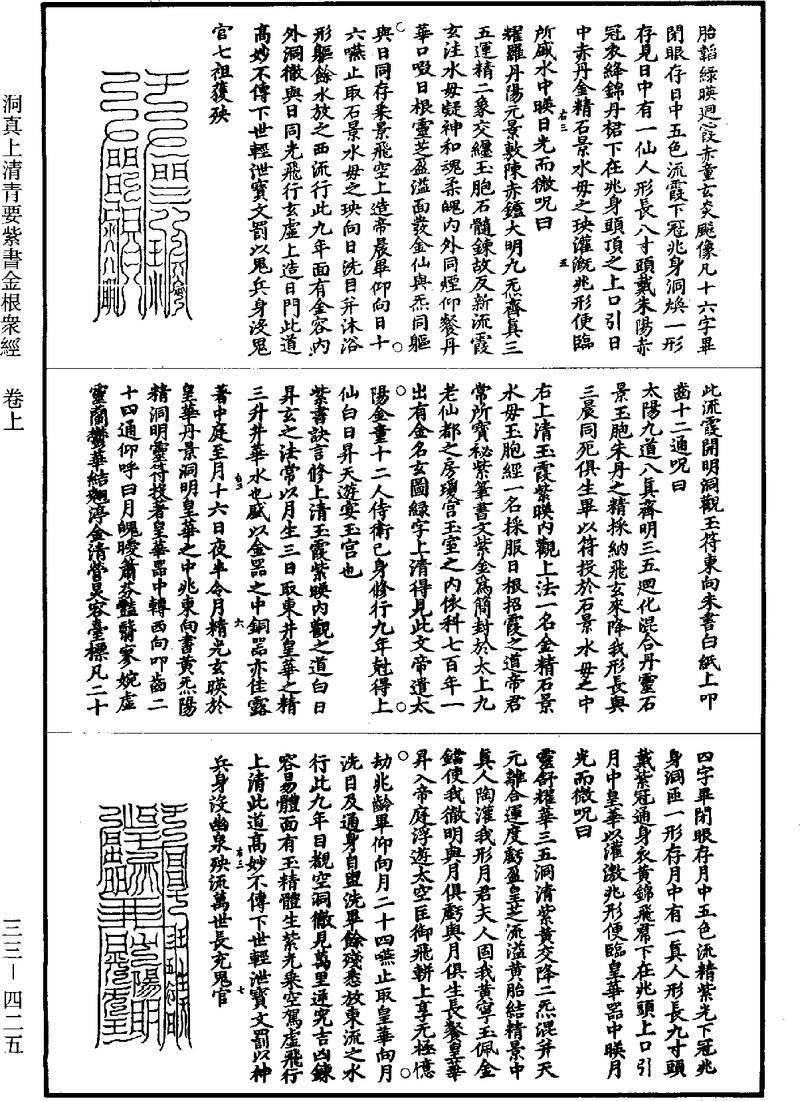 洞真上清青要紫書金根衆經　卷上
三三—四二五
胎韜綠暎迴霞赤童玄炎飈像凡十六字畢
閉眼存日中五色流霞下冠兆身洞煥一形
存見日中有一仙人形長八寸頭戴朱陽赤
冠衣絳錦丹裙下在兆身頭頂之上口引日
中赤丹金精石景水母之玦灌溉兆形便臨
右三　五
所盛水中暎日光而微呪曰
耀羅丹陽元景敷陳赤鑪大明九炁齊真三
五運精二象交纏玉胞石髓鍊故反新流霞
玄注水母凝神和魂柔魄內外同煙仰餐丹
華口啜日根靈芝盈溢面發金仙與炁同軀
與日同存乘景飛空上造帝晨畢仰向日十
六嚥止取石景水母之玦向日洗目并沐浴
形軀餘水放之西流行此九年面有金容內
外洞徹與日同光飛行玄虛上造日門此道
高妙不傳下世輕泄寶文罰以鬼兵身沒鬼
官七祖獲殃
此流霞開明洞觀玉符東向朱書白紙上叩
齒十二通呪曰
太陽九道八真齊明三五迴化混合丹靈石
景玉胞朱丹之精採納飛玄來降我形長與
三晨同死俱生畢以符投於石景水母之中
右上清玉霞紫暎內觀上法一名金精石景
水母玉胞經一名採服日根招霞之道帝君
常所寶祕紫筆書文紫金爲簡封於太上九
老仙都之房瓊宮玉室之內依科七百年一
出有金名玄圖綠字上清得見此文帝遣太
陽金童十二人侍衛己身修行九年尅得上
仙白日昇天遊宴玉宮也
紫書訣言修上清玉霞紫暎內觀之道白日
昇玄之法常以月生三日取東井皇華之精
三升井華水也盛以金器之中銅器亦佳露
右三　六
著中庭至月十六日夜半令月精光玄暎於
皇華丹景洞明皇華之中兆東向書黃炁陽
精洞明靈符投著皇華器中轉西向叩齒二
十四通仰呼曰月魄曖蕭芬豔翳寥婉虛
靈蘭鬱華結翹淳金清瑩炅容臺標凡二十
四字畢閉眼存月中五色流精紫光下冠兆
身洞匝一形存月中有一真人形長九寸頭
戴紫冠通身衣黃錦飛帬下在兆頭上口引
月中皇華以灌激兆形便臨皇華器中暎月
光而微呪曰
靈舒耀華三五洞清紫黃交降二炁混并天
元離合運度虧盈皇芝流溢黃胎結精景中
真人陶灌我形月君夫人固我黃寧玉佩金
鐺使我徹明與月俱虧與月俱生長餐皇華
昇入帝庭浮遊太空匡御飛軿上享元極億
劫兆齡畢仰向月二十四嚥止取皇華向月
洗目及通身自盥洗畢餘殘悉放東流之水
行此九年目觀空洞徹見萬里逆究吉凶鍊
容易體面有玉精體生紫光乘空駕虛飛行
上清此道高妙不傳下世輕泄寶文罰以神
右三　七
兵身沒幽泉殃流萬世長充鬼官